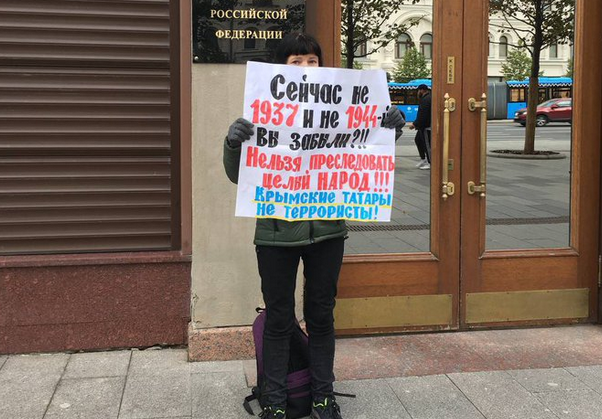 РОССИЙСКОЙ
ФЕДЕРАЦИИ
Сейчас не
1937 и не 1944-й
Вы забыли?!!
Нельзя преследовать
целый НАРОД!!!
Крымские татары
не террористы!